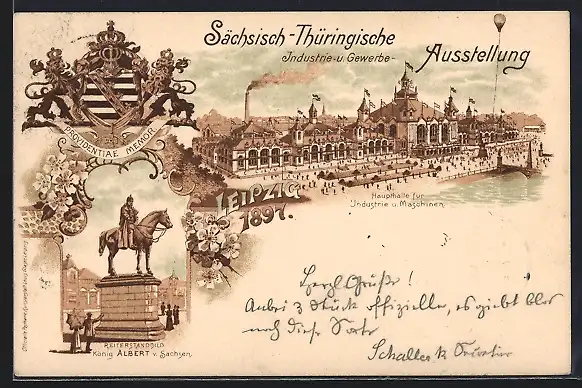 Sächsisch-Thüringische
Industrie- u. Gewerbe-
Ausstellung
PROVIDENTIAE MEMOR
LEIPZIG
1897.
Haupthalle für
Industrie u. Maschinen.
REITERSTANDBILD
König ALBERT v. Sachsen.
Herzl. Grüße!
Anbei 3 Stück offizielle, es giebt aber
noch diese Sorte